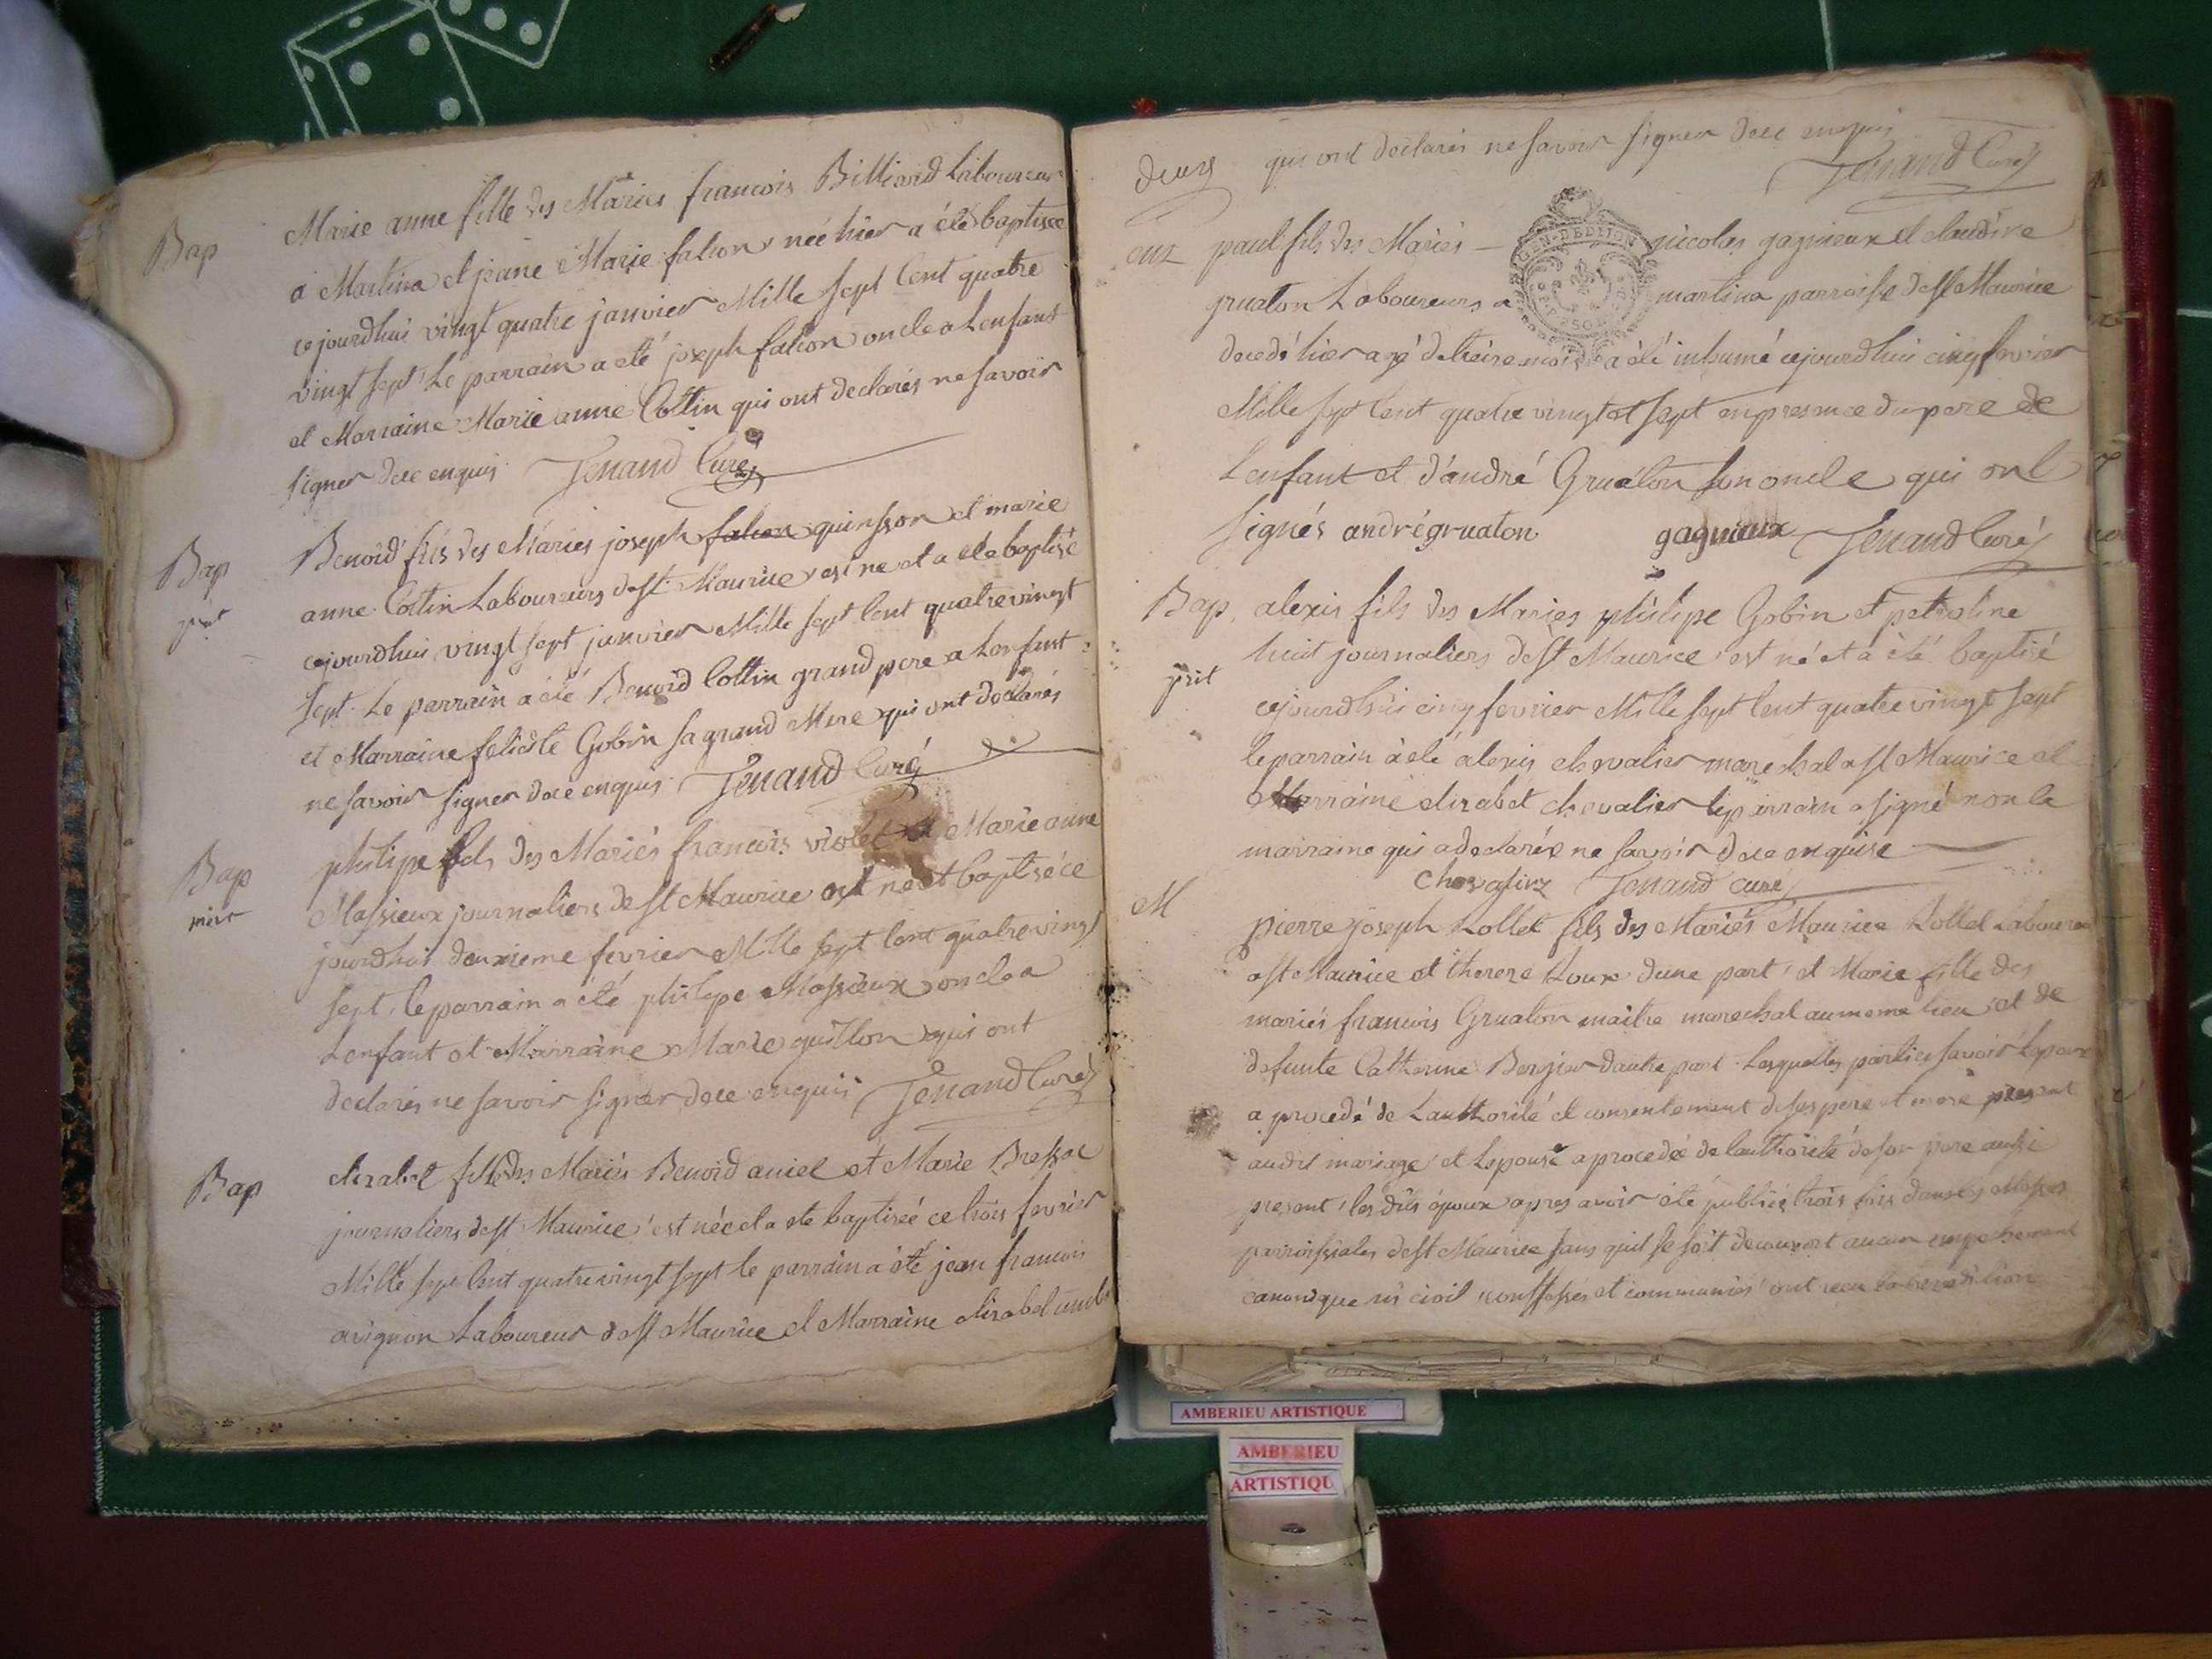 Bap
Marie anne fille des Mariés francois Billiard Laboureur
a Martina et jeane Marie falion née hier a été baptisée
cejourdhui vingt quatre janvier Mille sept Cent quatre
vingt sept. Le parrain a eté joseph falion oncle a Lenfant
et Marraine Marie anne Cottin qui ont declarés ne savoir
signer dece enquis Jenand Curé
Bap
Benoid fils des Mariés joseph falion quinsson et marie
anne Cottin Laboureurs de St Maurice est né et a eté baptisé
cejourdhui vingt sept janvier Mille sept Cent quatrevingt
sept. Le parrain a été Benoid Cottin grand pere a Lenfant
et Marraine feliciste Gobin sa grand Mere qui ont declarés
ne savoir signer dece enquis Jenand Curé
Bap
mort
philipe fils des Mariés francois violet et Marie anne
Massieux journaliers de St Maurice est né et baptisé ce
jourdhui deuxieme fevrier Mille sept Cent quatrevingt
sept, le parrain a été philipe Massieux oncle a
Lenfant et Marraine Marie guillon qui ont
declarés ne savoir signer dece enquis Jenand Curé
Bap
elizabet fille des Mariés Benoid amiel et Marie Bressac
journaliers de St Maurice est née et a eté baptisée ce trois fevrier
Mille sept Cent quatrevingt sept le parrain a été jean francois
avignon Laboureur de St Maurice et Marraine elizabet
deux
qui ont declarés ne savoir signer dece enquis
Jenand Curé
GEN. DE LYON
paul fils des Mariés — nicolas gagnieux et claudine
gruaton Laboureurs a martina parroisse de St Maurice
decedé hier agé de treize mois a été inhumé cejourdhui cinq fevrier
Mille sept Cent quatre vingt et sept en presence du pere de
Lenfant et d'andré Gruaton son oncle qui ont
signés andré gruaton gagnieux Jenand Curé
Bap.
alexis fils des Mariés philipe Gobin et petroline
huit journaliers de St Maurice est né et a été baptisé
cejourdhui cinq fevrier Mille sept Cent quatre vingt sept
le parrain a été alexis chevalier marechal a St Maurice et
Marraine elizabet chevalier le parrain a signé non la
marraine qui a declarée ne savoir dece enquise
chevalier Jenand curé
M
pierre joseph Lollet fils des Mariés Maurice Lollet Laboureur
a St Maurice et therese Roux dune part, et Marie fille des
mariés francois Gruaton maitre marechal au meme lieu et de
defunte Catherine Bergier dautre part. Lesquelles parties savoir Lepoux
a procedé de Lauthorité et consentement de ses pere et mere present
audit mariage et Lepouse a procedée de lauthorité de son pere aussi
present, les dits époux apres avoir été publiés trois fois dans les Messes
parroissiales de St Maurice sans quil se soit decouvert aucun empechement
canonique ni civil, confessés et communiés ont recu la benediction
AMBERIEU ARTISTIQUE
AMBERIEU
ARTISTIQU